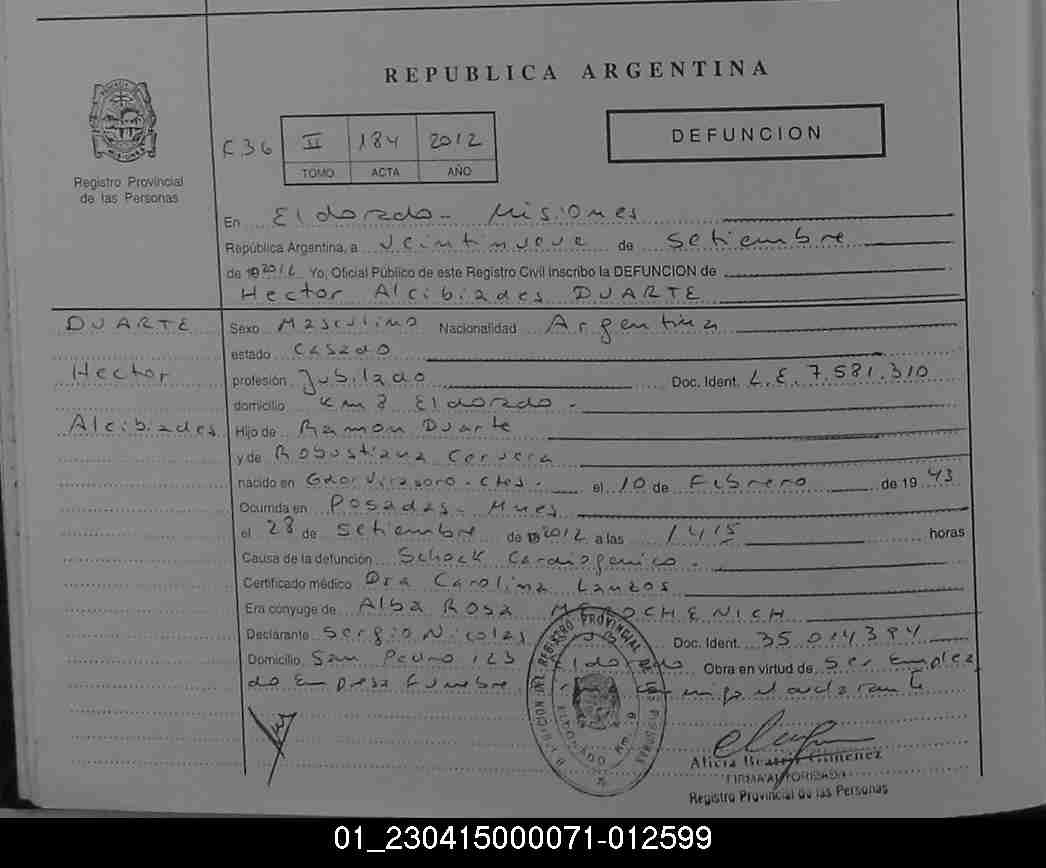 REPUBLICA ARGENTINA
F36 II 184 2012
TOMO ACTA AÑO
DEFUNCION
Registro Provincial
de las Personas
En Eldorado - Misiones
República Argentina, a Veintinueve de Setiembre
de 2012 Yo, Oficial Público de este Registro Civil inscribo la DEFUNCION de
Hector Alcibiades DUARTE
DUARTE
Hector
Alcibiades
Sexo Masculino Nacionalidad Argentina
estado Casado
profesión Jubilado Doc. Ident. L.E. 7.581.310
domicilio Km 8 Eldorado -
Hijo de Ramon Duarte
y de Robustiana Cervera
nacido en Gdor Virasoro - Ctes - el 10 de Febrero de 1943
Ocurrida en Posadas - Mnes
el 28 de Setiembre de 2012 a las 1415 horas
Causa de la defunción Schock Cardiogenico -
Certificado médico Dra Carolina Lanzos
Era cónyuge de Alba Rosa
Declarante Sergio Nicolas Doc. Ident. 35.014.384
Domicilio San Pedro 123 Eldorado Obra en virtud de Ser Emplea
do Empresa Funebre conmigo el declarante
REGISTRO PROVINCIAL DE LAS PERSONAS
ELDORADO Km. 9
Alicia Beatriz Gimenez
FIRMA AUTORIZADA
Registro Provincial de las Personas
01_230415000071-012599